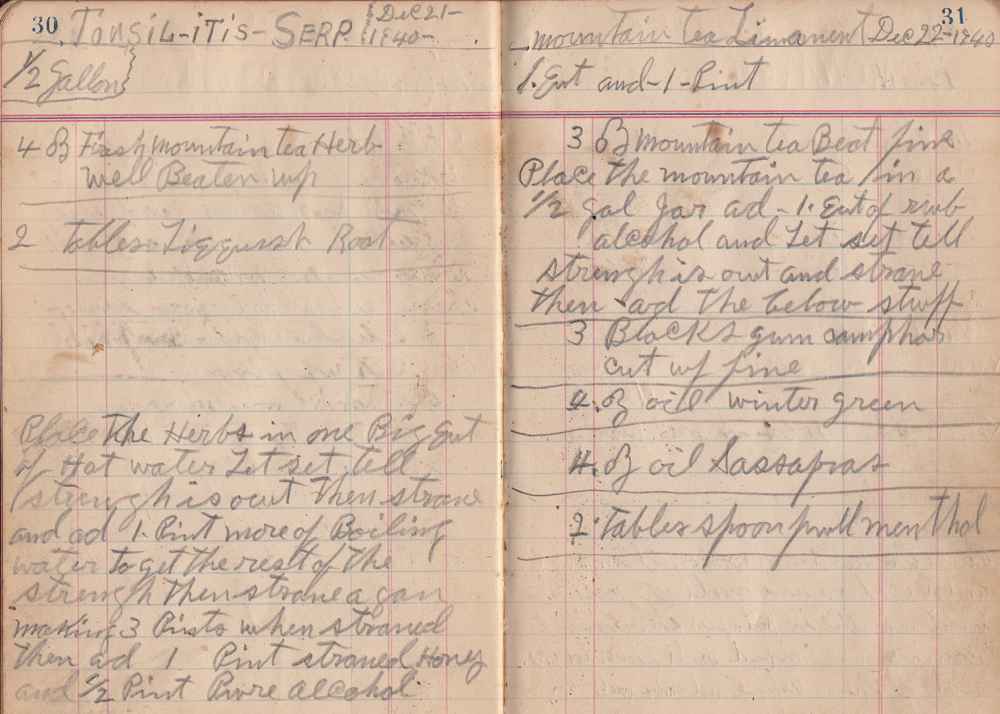 30
Tonsil-itis-Serp.
Dec 21-
1940-
1/2 Gallon
4 oz Fresh mountain tea Herb
well Beaten up
2 tables Root
Place the Herbs in one Big qut
of Hot water Let set tell
strengh is out then strane
and ad 1. Pint more of Boiling
water to get the rest of the
strengh then strane a gan
making 3 Pints when straned
then ad 1 Pint straned Honey
and 1/2 Pint Pure alcohol
31
mountain tea Linament Dec 22-1940
1. Qut and-1-Pint
3 oz mountain tea Beat fine
Place the mountain tea in a
1/2 gal Jar ad-1. Qut of rub
alcohol and Let set tell
strengh is out and strane
then ad the below stuff
3 Blocks gum camphor
cut up fine
4. oz oil winter green
4. oz oil Sassafras
2. tables spoon full menthol